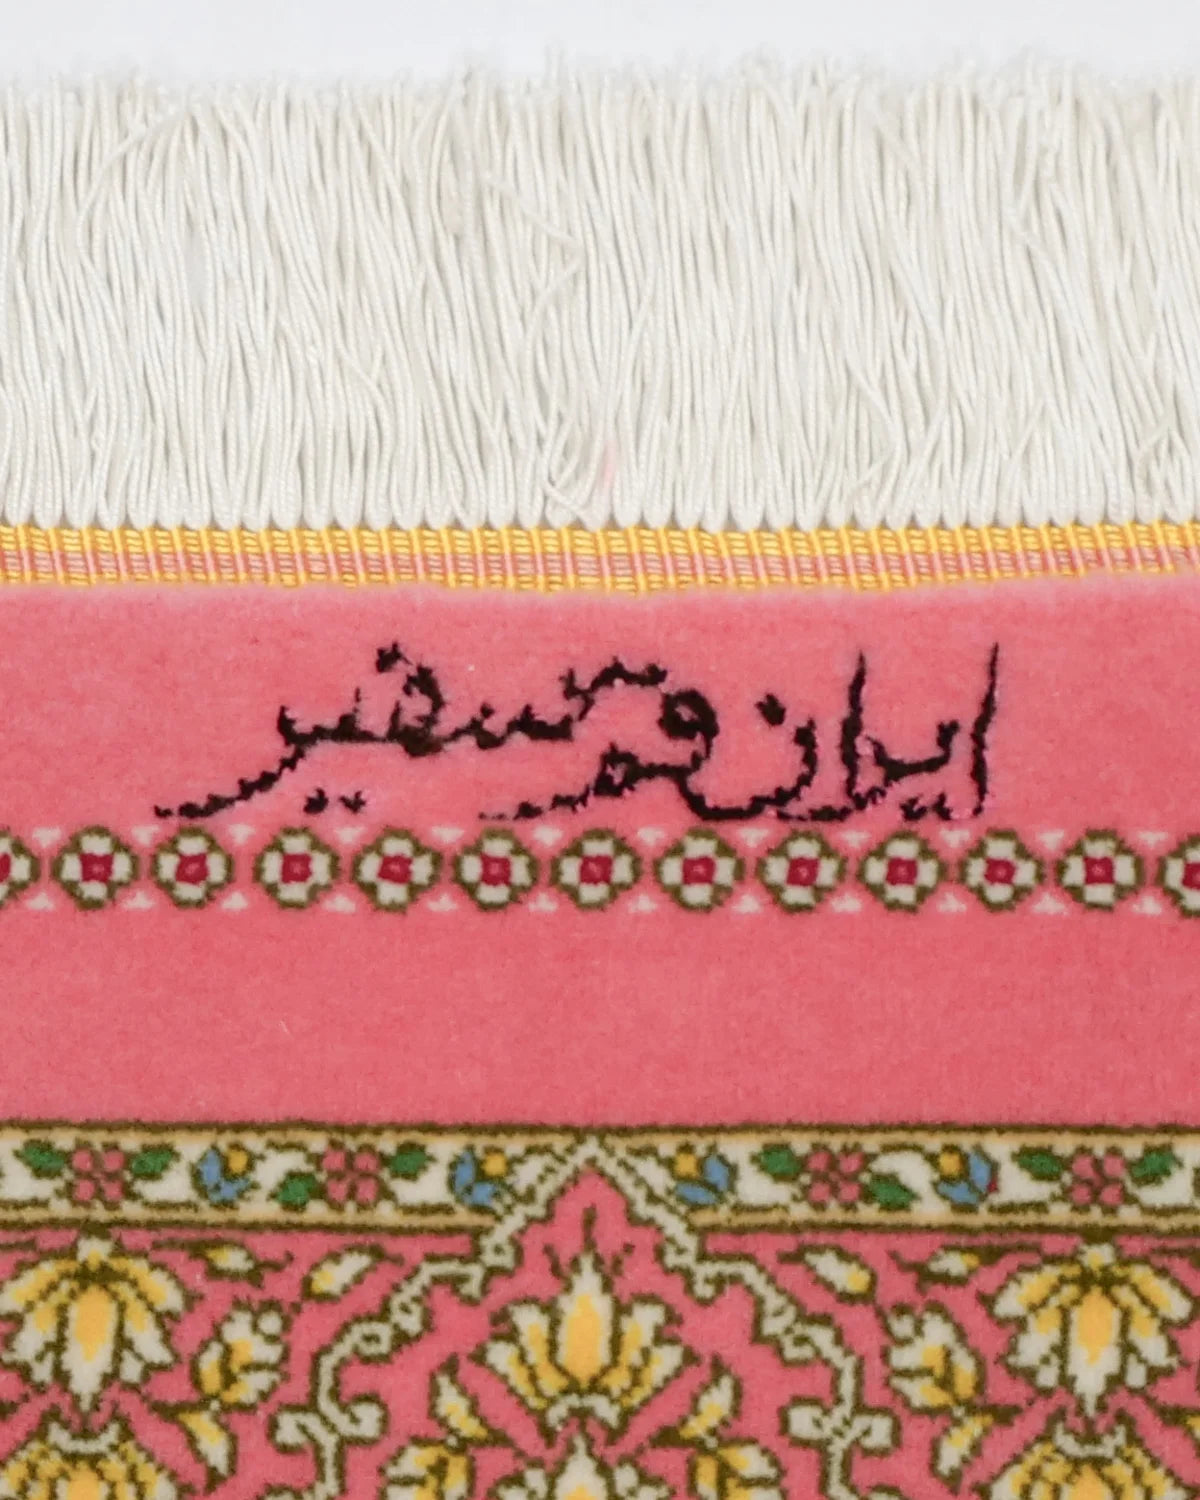 ایران قم سفیر